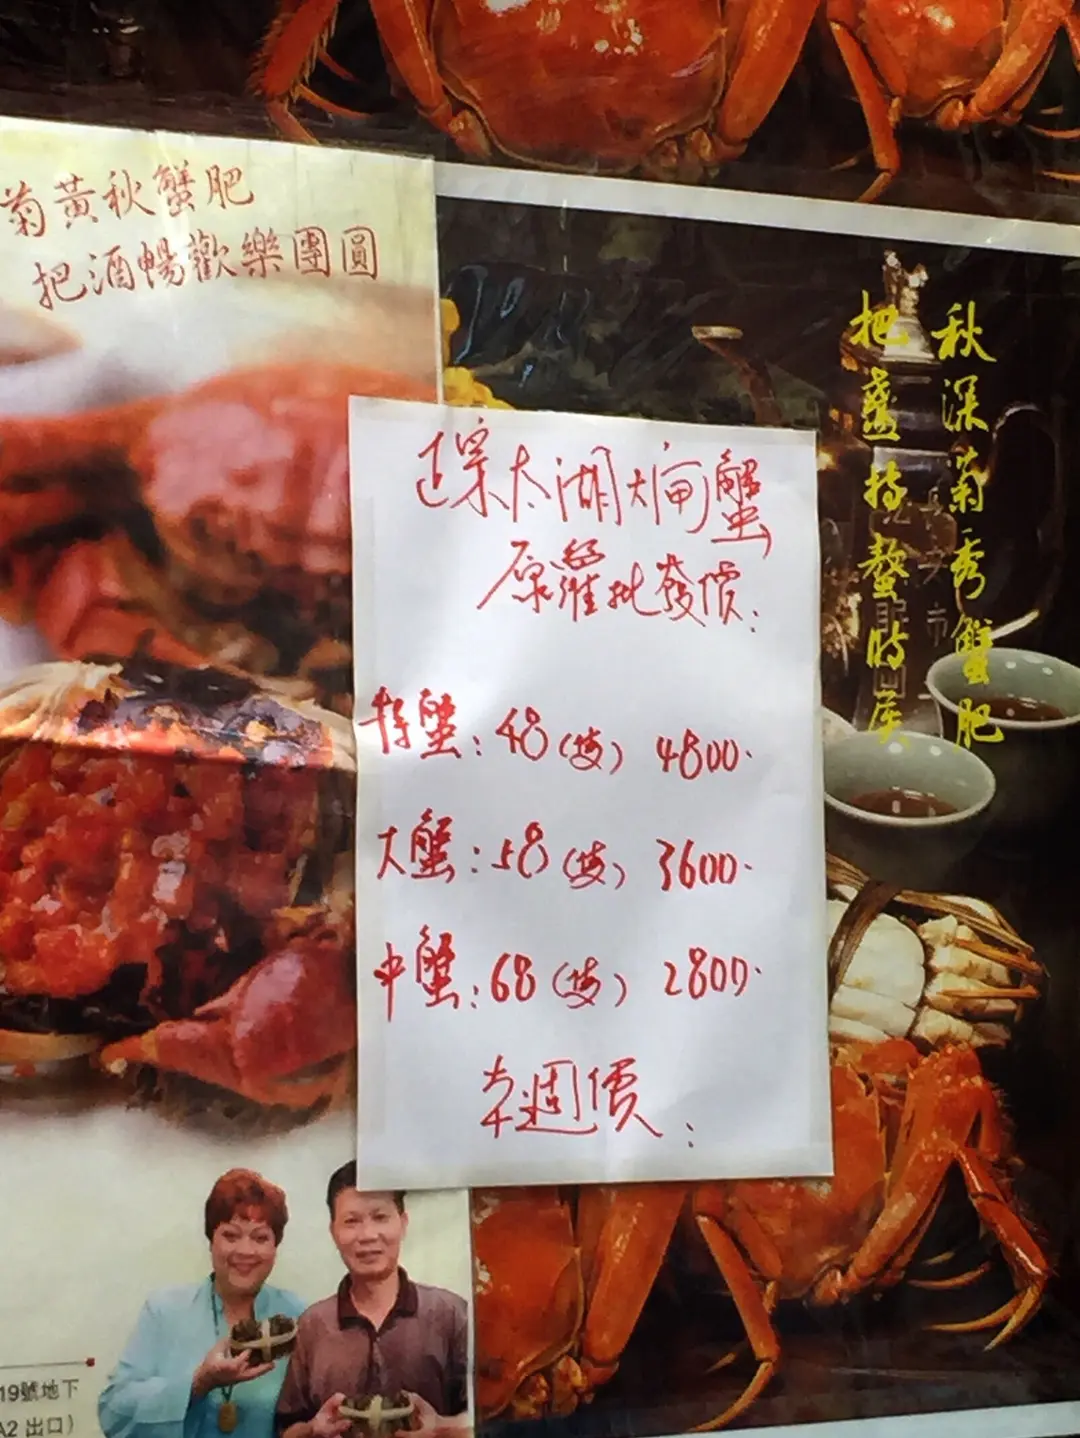 菊黃秋蟹肥
把酒暢歡樂團圓
秋深菊秀蟹肥
把盞持螯時候
正宗太湖大閘蟹
原籮批發價：
特蟹：48(隻) 4800.
大蟹：58(隻) 3600.
中蟹：68(隻) 2800.
本週價：
19號地下
A2 出口)